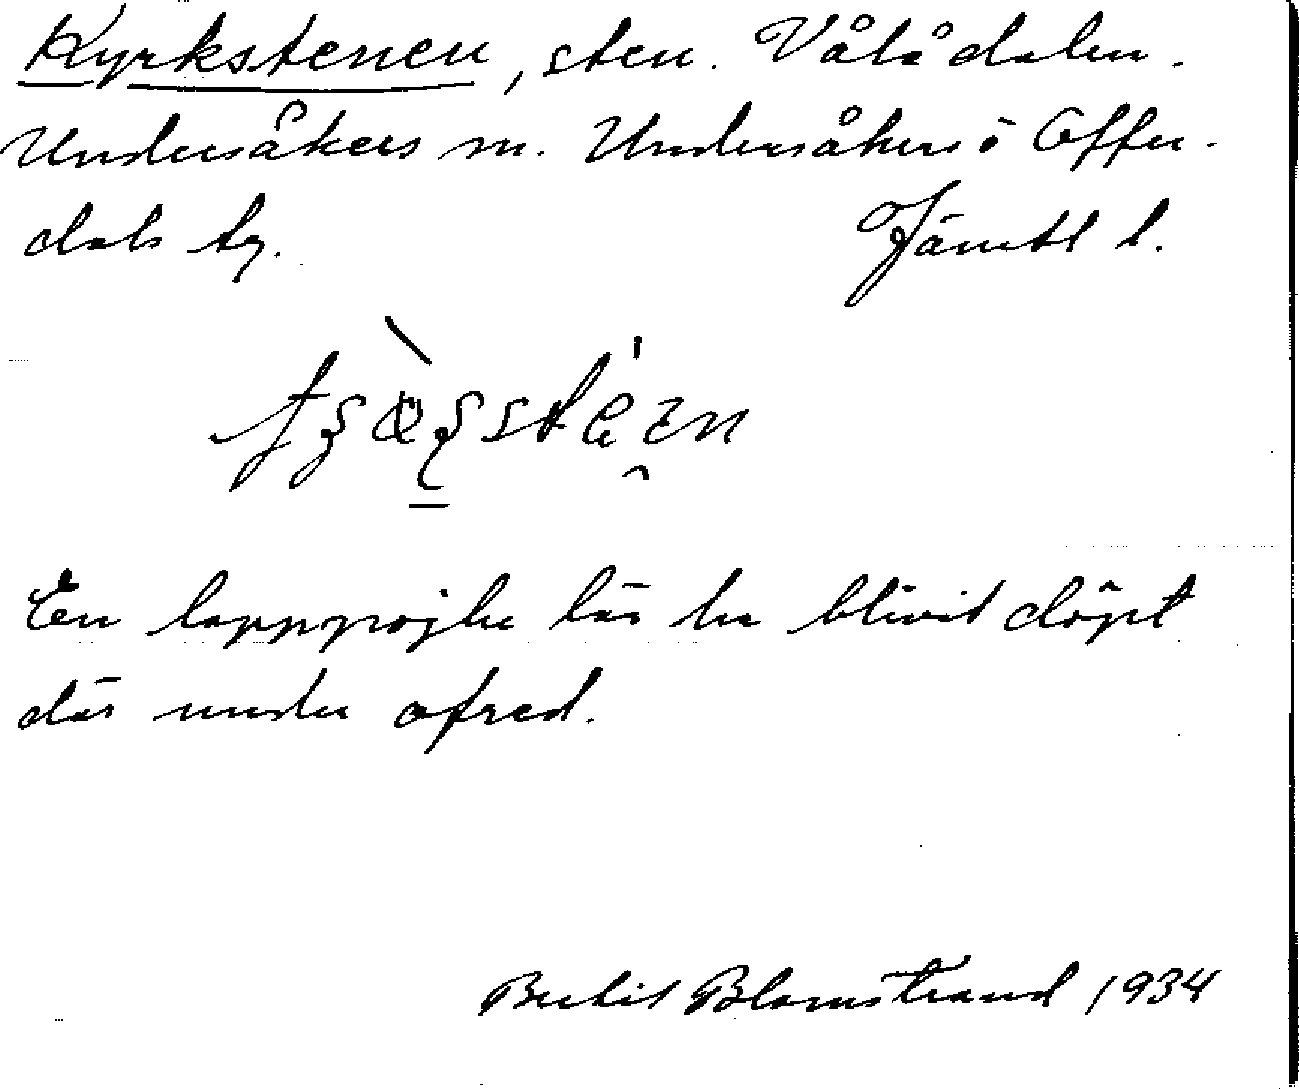 Kyrkstenen, sten. Vålådalen.
Undersåkers sn. Undersåkers o Offer-
dals tg. Jämtl l.
En lapppojke lär ha blivit döpt
där under ofred.
Berhit Blomstrand 1934